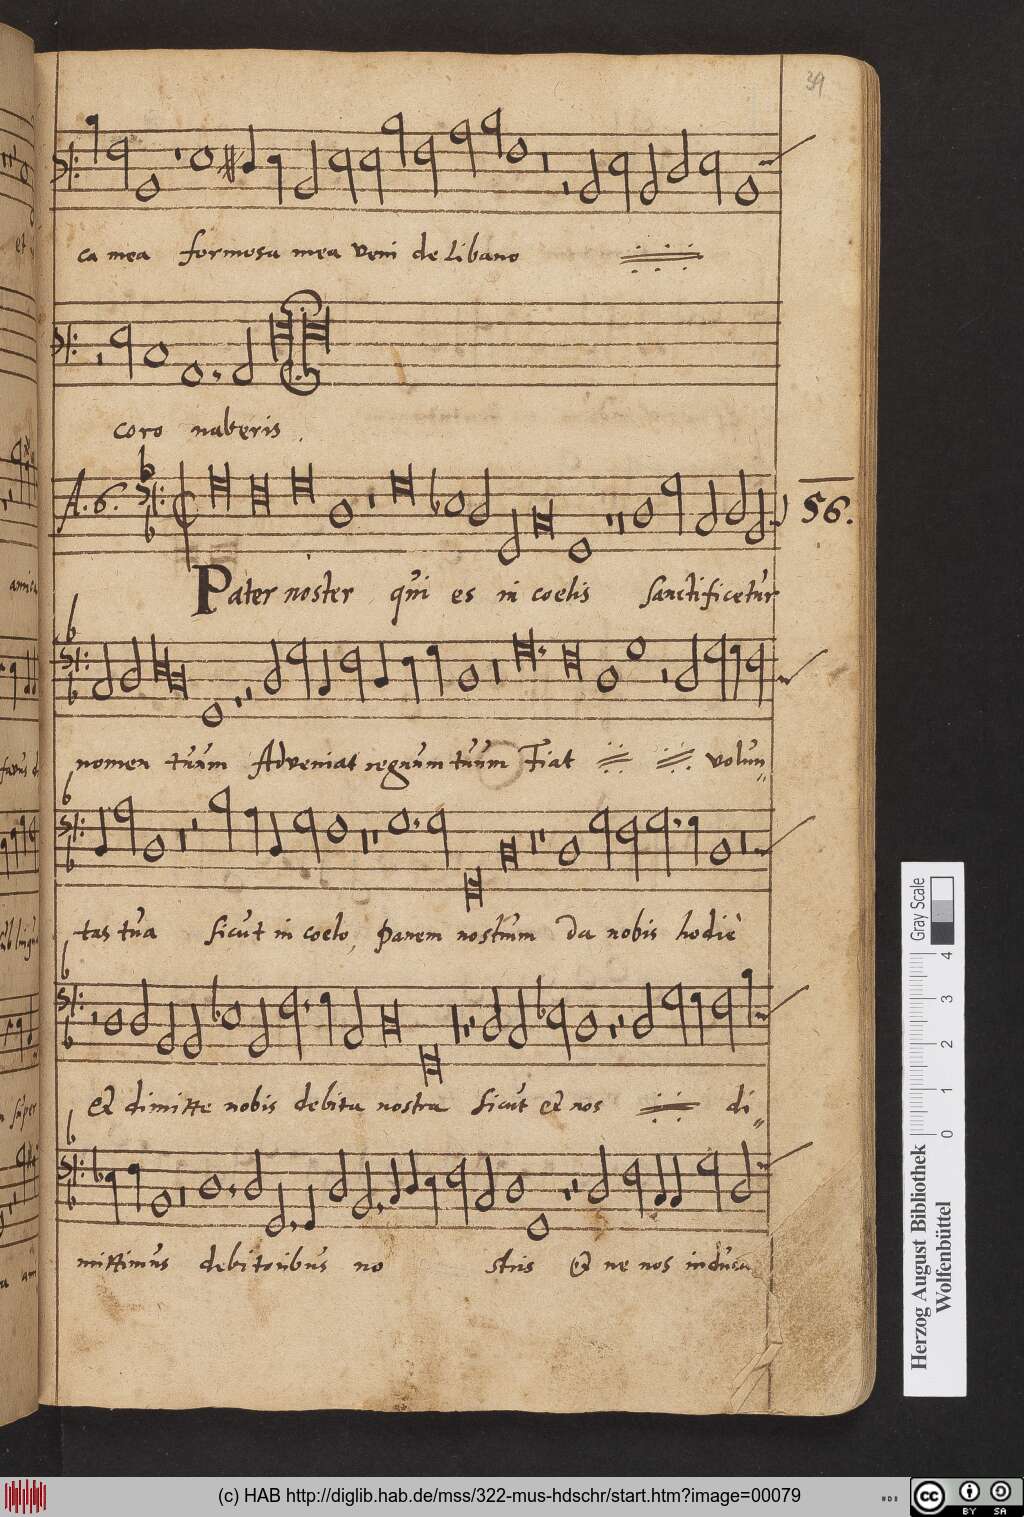 39
ca mea formosa mea veni de libano
coro naberis.
A. 6.
56.
Pater noster qui es in coelis Sanctificetur
nomen tuum Adveniat regnum tuum Fiat volun"
tas tua sicut in coelo, Panem nostrum da nobis hodiè
Et dimitte nobis debita nostra Sicut et nos di"
mittimus debitoribus no stris Et ne nos inducas
Gray Scale
0 1 2 3 4
Herzog August Bibliothek
Wolfenbüttel
(c) HAB http://diglib.hab.de/mss/322-mus-hdschr/start.htm?image=00079
HAB
cc BY SA